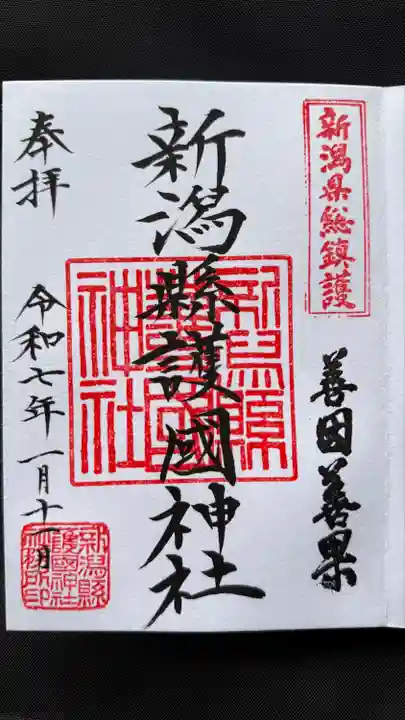 新潟県総鎮護
善因善果
新潟縣護國神社
新潟縣護國神社
奉拝
令和七年一月十一日
新潟縣護國神社社務所印